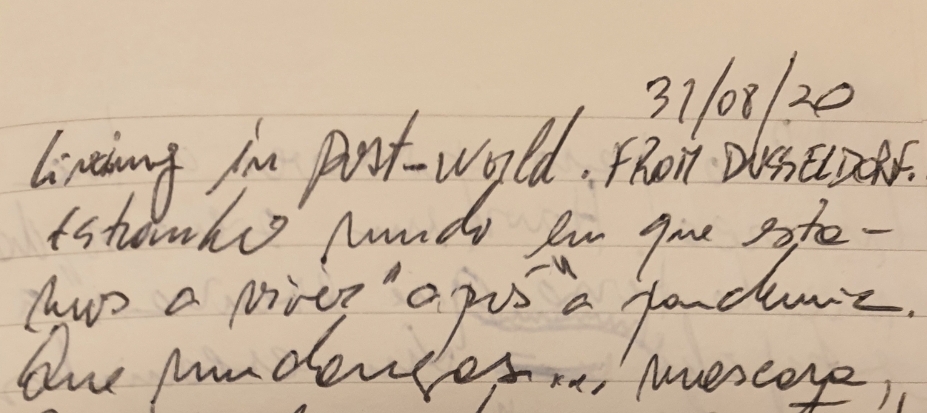 31/08/20
Living in post-world. FROM DUSSELDORF.
Estranho mundo em que esta-
mos a viver "após" a pandemia.
Que mudanças... mascara,